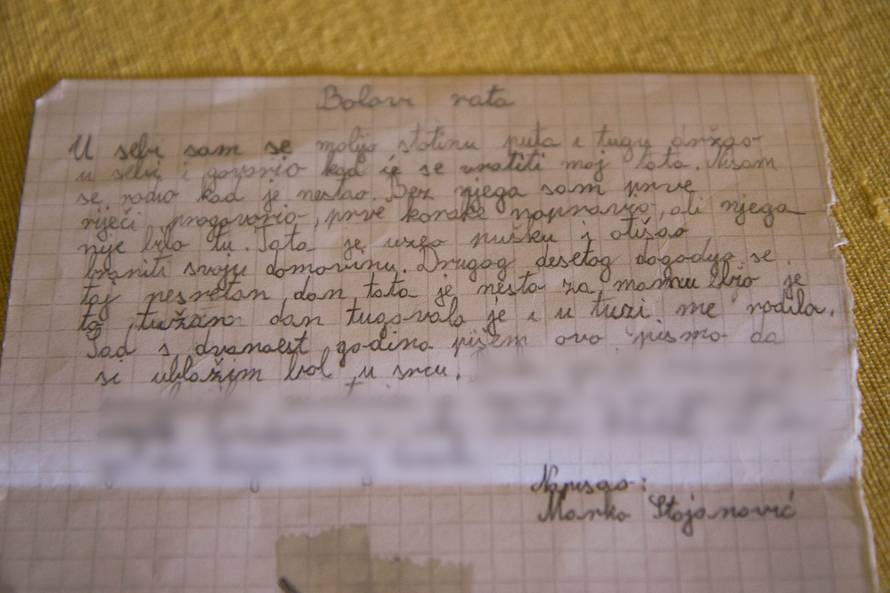 Bolovi rata
U sebi sam se molio stotinu puta i tugu držao
u sebi i govorio kad će se vratiti moj tata. Nisam
se rodio kad je nestao. Bez njega sam prve
riječi progovorio, prve korake napravio, ali njega
nije bilo tu. Tata je uzeo pušku i otišao
braniti svoju domovinu. Drugog desetog dogodija se
taj nesretan dan, tata je nesta za mamu bio je
to tužan dan tugovala je i u tuzi me rodila.
Sad s dvanaest godina pišem ovo pismo da
si ublažim bol u srcu.
Napisao:
Marko Stojanović